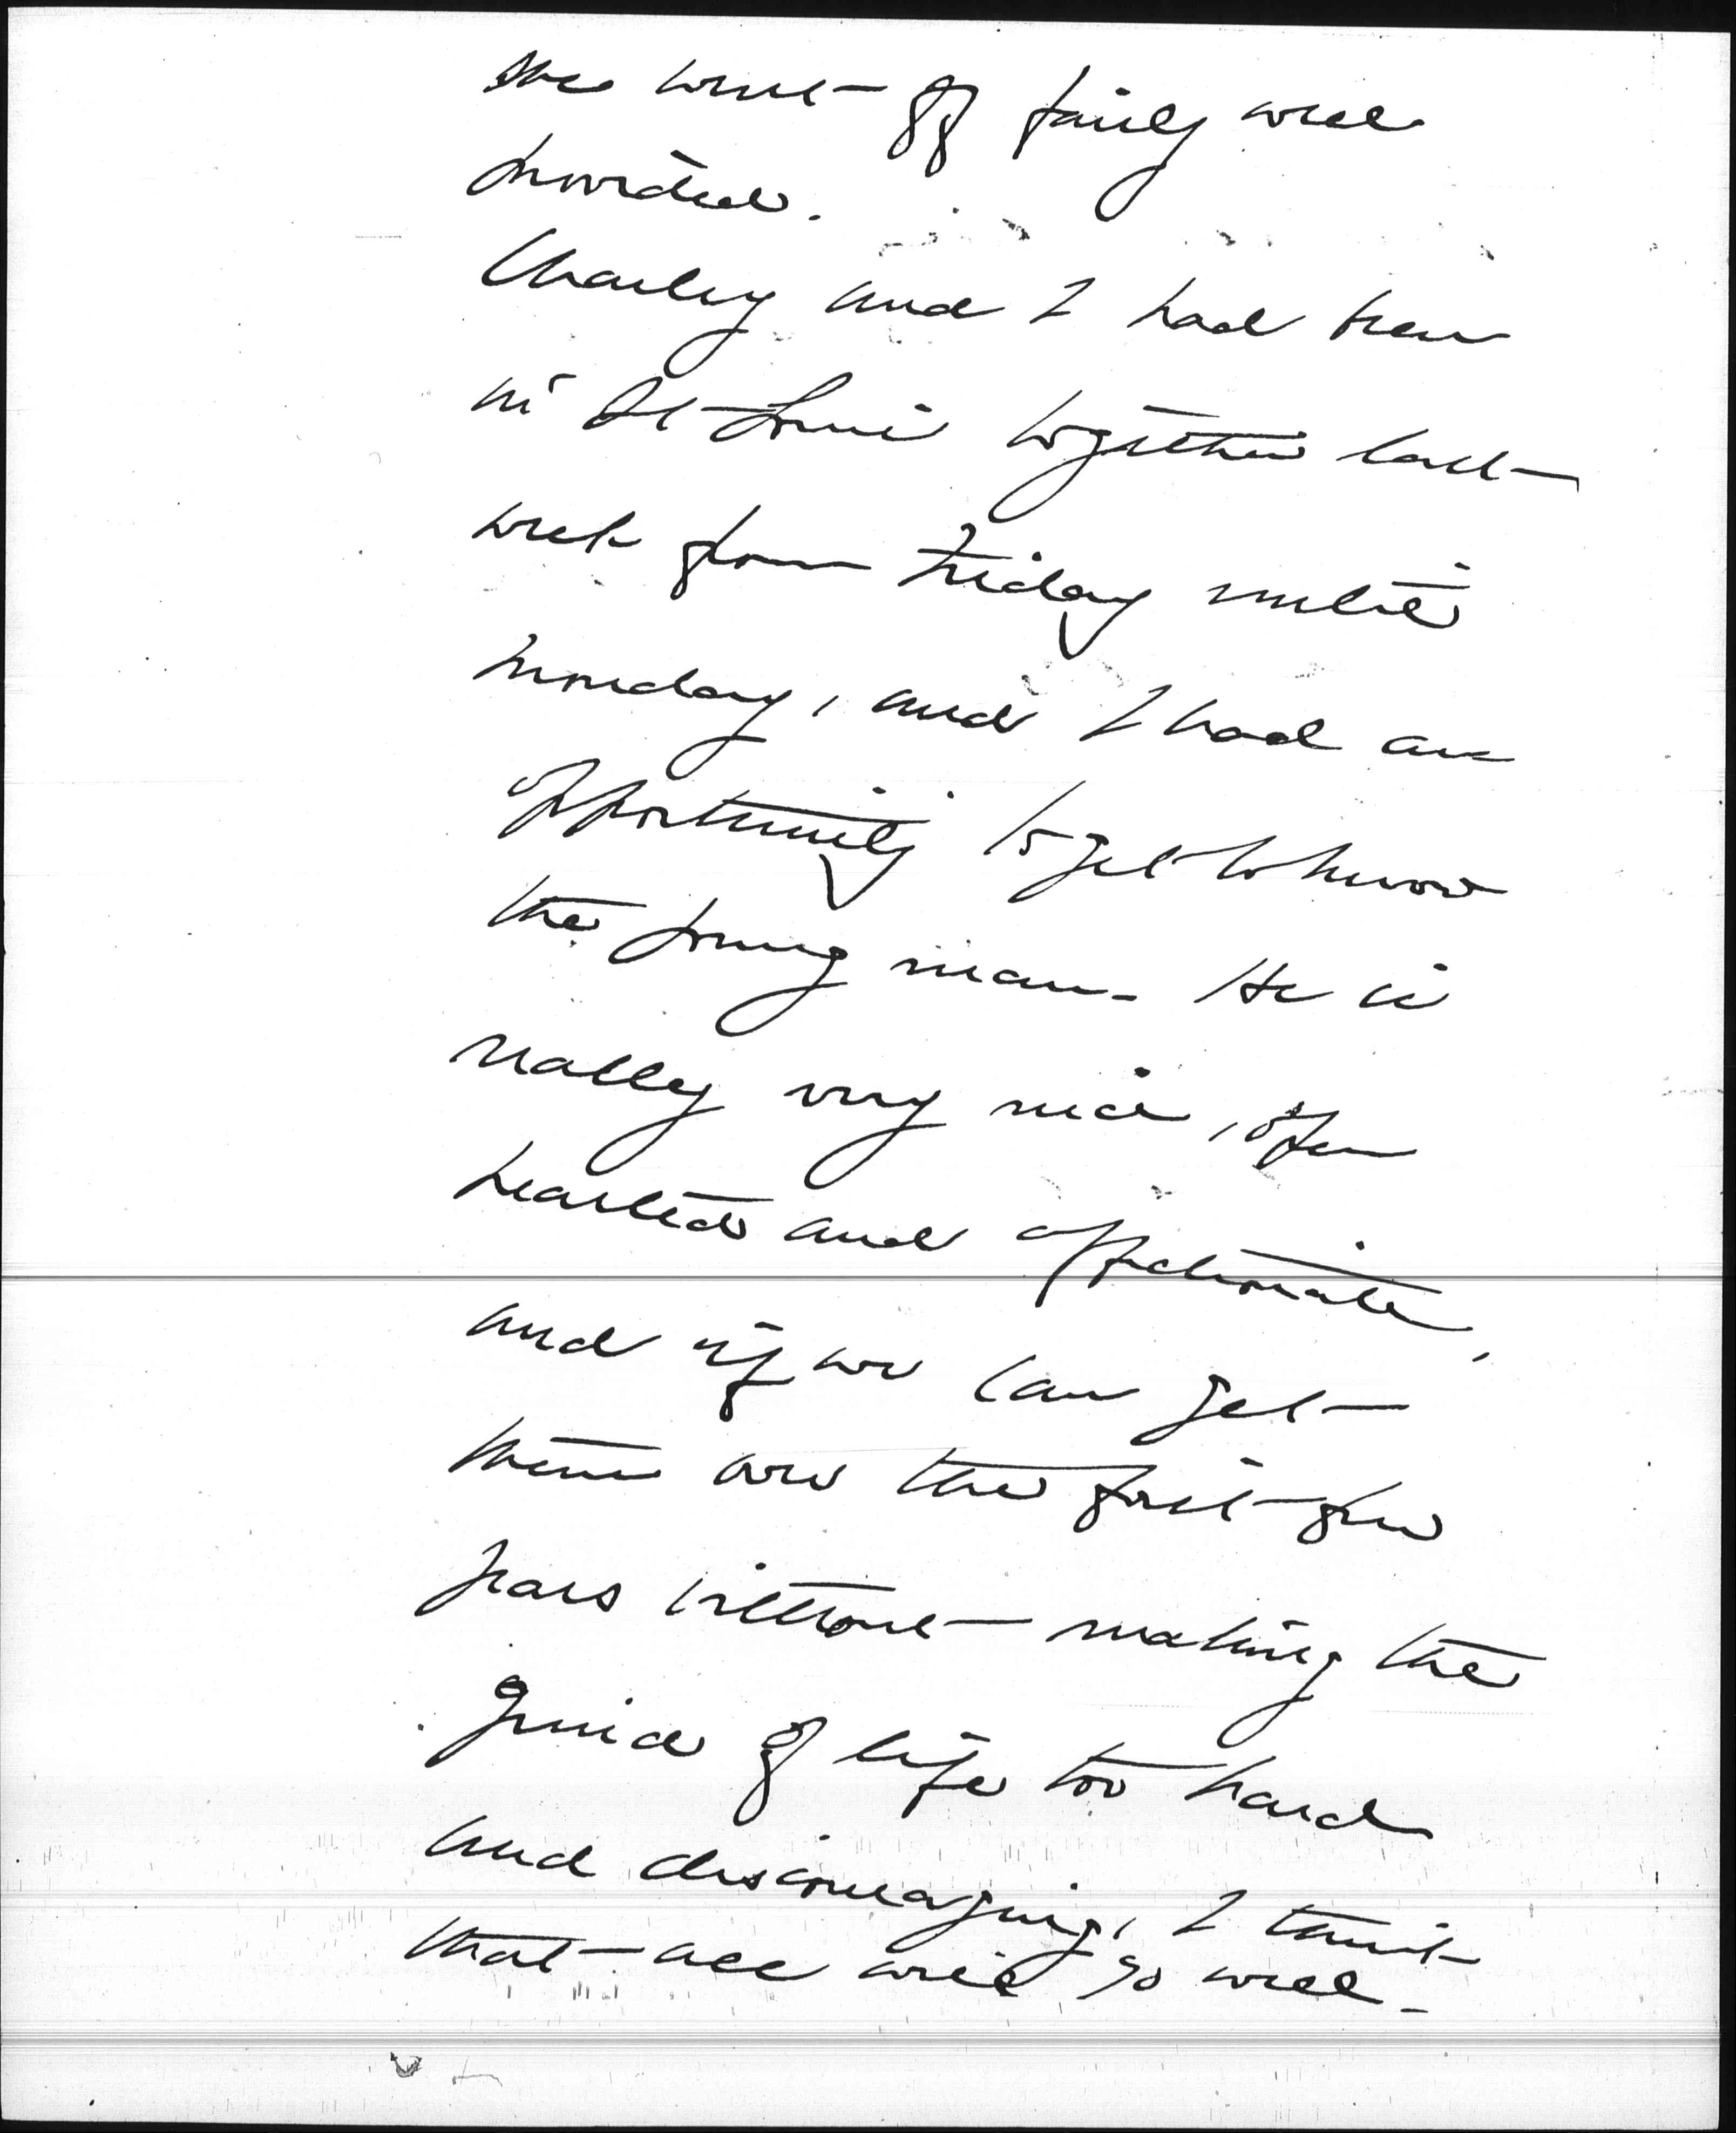 she went off fairly well
provided.
Charley and I had been
in St Louis together last
week from Friday until
Monday, and I had an
opportunity to get to know
the young man. He is
really very nice, open
hearted and affectionate,
and if we can get
them over the first few
years without making the
grind of life too hard
and discouraging, I think
that all will go well.